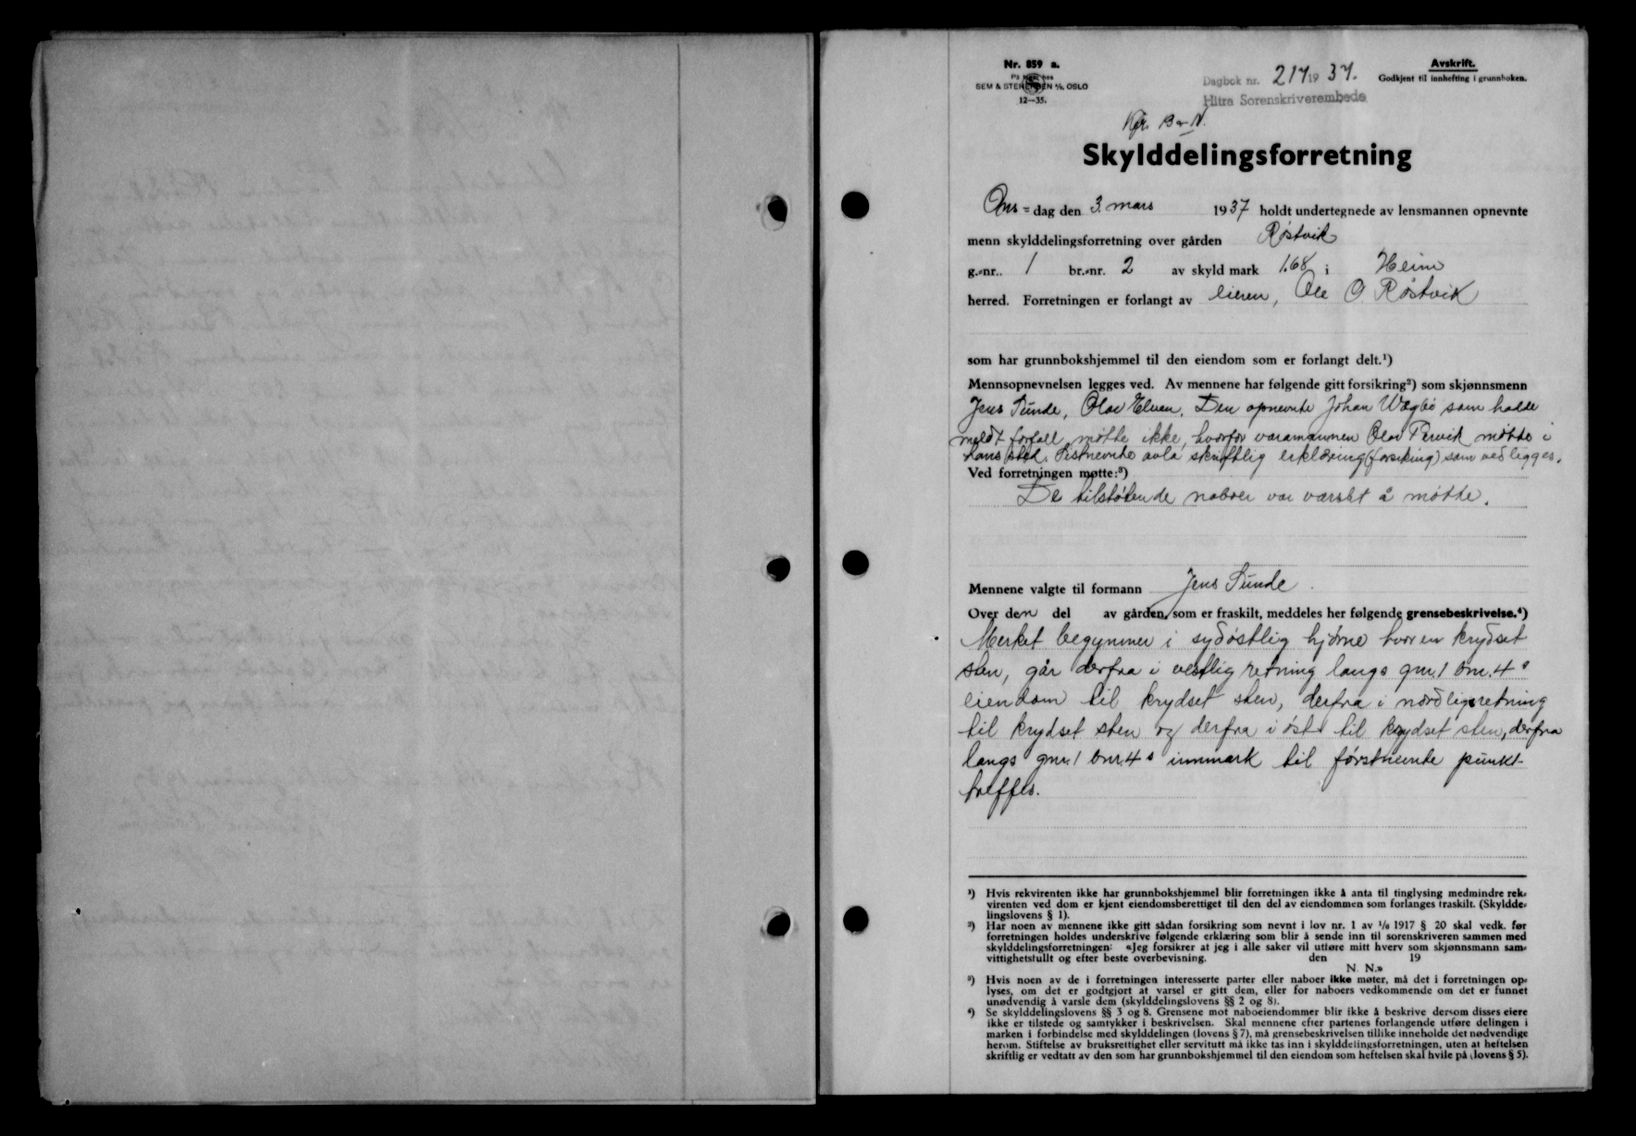 Nr. 859 a.
SEM & STENERSEN A/S, OSLO
12—35.
Dagbok nr. 217 19 37.
Hitra Sorenskriverembede
Avskrift.
Godkjent til innhefting i grunnboken.
Skylddelingsforretning
Ons=dag den 3. mars 1937 holdt undertegnede av lensmannen opnevnte
menn skylddelingsforretning over gården Røstvik
g.=nr. 1 br.=nr. 2 av skyld mark 1.68 i Heim
herred. Forretningen er forlangt av eieren, Ole O Røstvik
som har grunnbokshjemmel til den eiendom som er forlangt delt.¹)
Mennsopnevnelsen legges ved. Av mennene har følgende gitt forsikring²) som skjønnsmenn
Jens Sunde, Olav Elven. Den opnevnte Johan Vægbø som hadde
meldt forfall møtte ikke, hvorfor varamannen Olav Tervik møtte i
hans sted. Sistnevnte avla skriftlig erklæring (forsikring) som vedlegges.
Ved forretningen møtte:³)
De tilstøtende naboer var varslet å møtte.
Mennene valgte til formann Jens Sunde.
Over den del av gården, som er fraskilt, meddeles her følgende grensebeskrivelse.⁴)
Merket begynner i sydøstlig hjørne hvor en krydset
sten, går derfra i vestlig retning langs gnr. 1 bnr. 4s
eiendom til krydset sten, derfra i nordlig retning
til krydset sten og derfra i øst til krydset sten, derfra
langs gnr. 1 bnr. 4s innmark til førstnevnte punkt
treffes.
¹) Hvis rekvirenten ikke har grunnbokshjemmel blir forretningen ikke å anta til tinglysing medmindre rek=
virenten ved dom er kjent eiendomsberettiget til den del av eiendommen som forlanges fraskilt. (Skyldde=
lingslovens § 1).
²) Har noen av mennene ikke gitt sådan forsikring som nevnt i lov nr. 1 av 1/6 1917 § 20 skal vedk. før
forretningen holdes underskrive følgende erklæring som blir å sende inn til sorenskriveren sammen med
skylddelingsforretningen: «Jeg forsikrer at jeg i alle saker vil utføre mitt hverv som skjønnsmann sam=
vittighetsfullt og efter beste overbevisning. den 19
N. N.»
³) Hvis noen av de i forretningen interesserte parter eller naboer ikke møter, må det i forretningen op=
lyses, om det er godtgjort at varsel er gitt dem, eller for naboers vedkommende om det er funnet
unødvendig å varsle dem (skylddelingslovens §§ 2 og 8).
⁴) Se skylddelingslovens §§ 3 og 8. Grensene mot naboeiendommer blir ikke å beskrive dersom disses eiere
ikke er tilstede og samtykker i beskrivelsen. Skal mennene efter partenes forlangende utføre delingen i
marken i forbindelse med skylddelingen (lovens § 7), må grensebeskrivelsen tillike inneholde det nødvendige
herom. Stiftelse av bruksrettighet eller servitutt må ikke tas inn i skylddelingsforretningen, uten at heftelsen
skriftlig er vedtatt av den som har grunnbokshjemmel til den eiendom som heftelsen skal hvile på (lovens § 5).